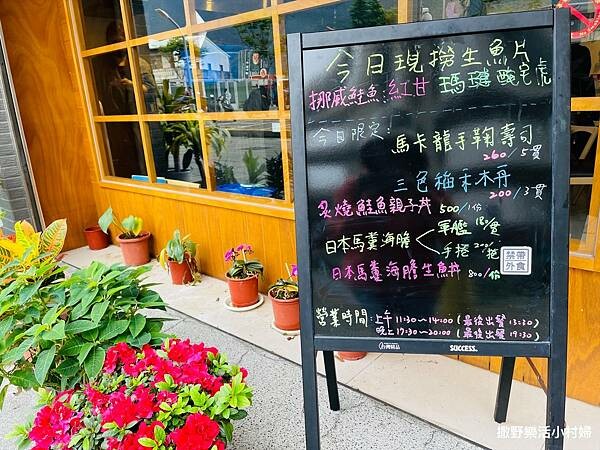 今日現撈生魚片
挪威鮭魚:紅甘
今日限定:
馬卡龍手鞠壽司
260/5貫
三色稻禾丼
200/3貫
炙燒鮭魚親子丼 500/1份
日本馬糞海膽
軍艦
手捲
日本馬糞海膽生魚丼 800/1份
禁帶外食
營業時間:上午11:30~14:00(最後出餐13:30)
晚上17:30~20:00(最後出餐19:30)
SUCCESS.
撒野樂活小村婦